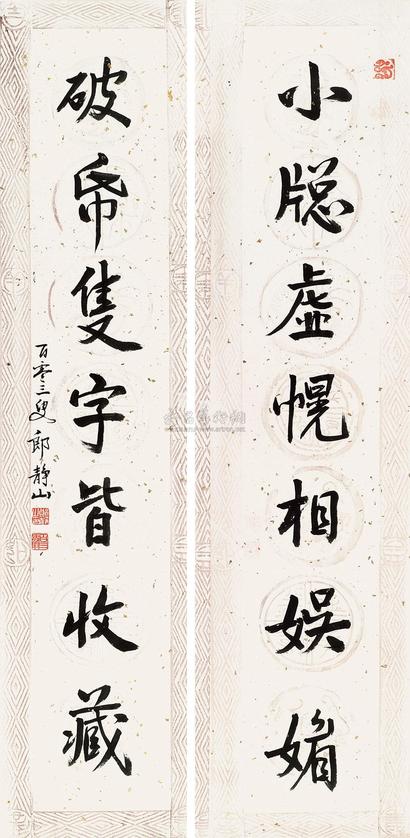 小牕虛幌相娛媚
破帋隻字皆收藏
百零三叟郎靜山